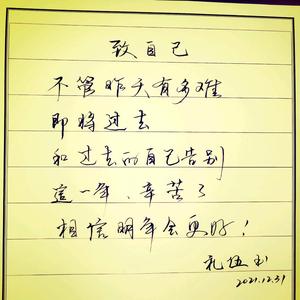 致自己
不管昨天有多难
即将过去
和过去的自己告别
這一年、辛苦了
相信明年会更好！
礼伍书
2021.12.31